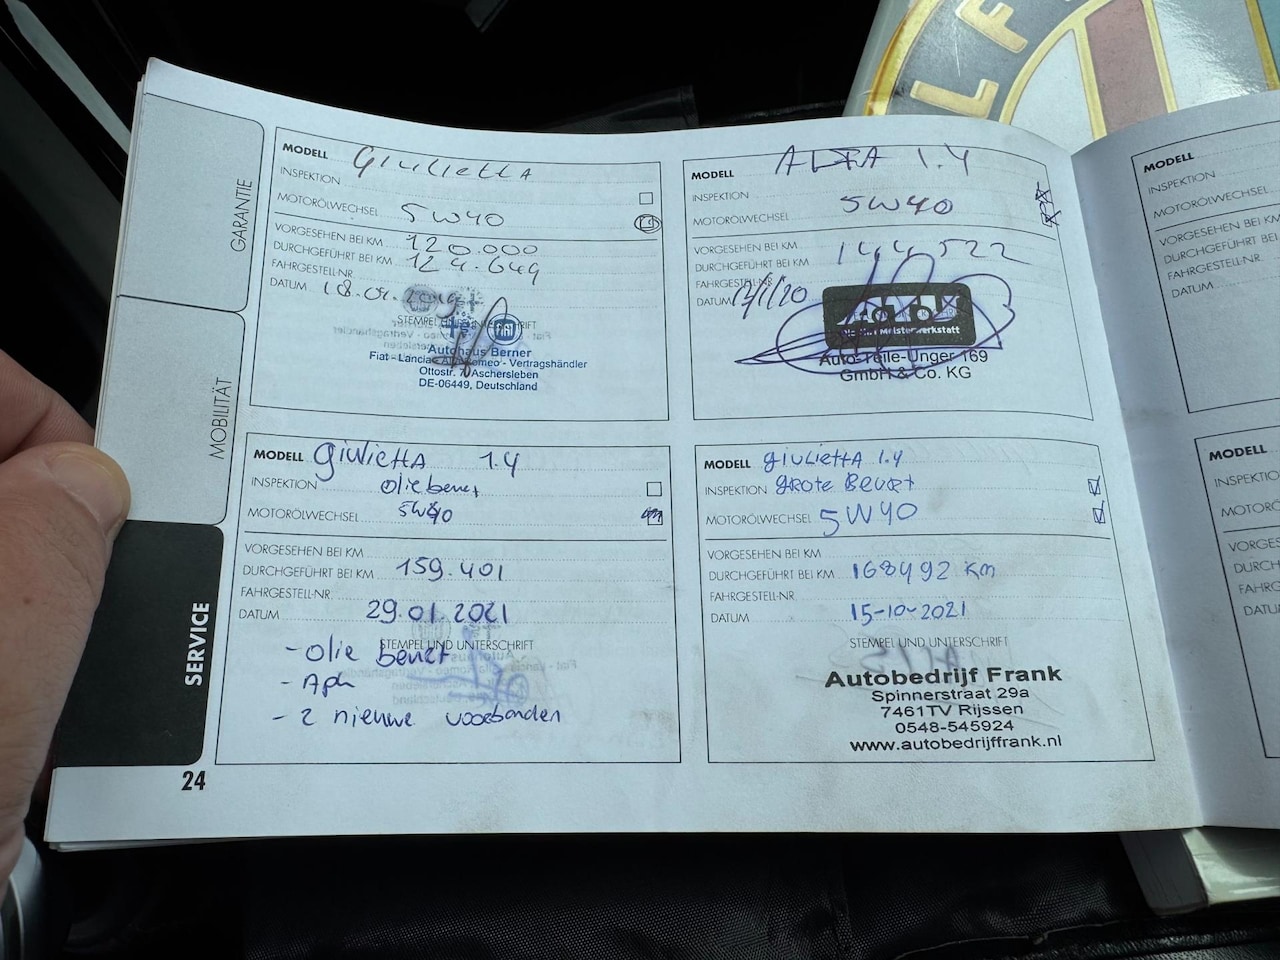 LF
GARANTIE
MOBILITÄT
SERVICE
MODELL Giulietta
INSPEKTION
MOTORÖLWECHSEL 5W40
VORGESEHEN BEI KM 120.000
DURCHGEFÜHRT BEI KM 124.649
FAHRGESTELL-NR.
DATUM
STEMPEL UND UNTERSCHRIFT
FIAT
Autohaus Berner
Fiat - Lancia - Alfa Romeo - Vertragshändler
Ottostr. 7, Aschersleben
DE-06449, Deutschland
MODELL ALFA 1.4
INSPEKTION
MOTORÖLWECHSEL 5W40
VORGESEHEN BEI KM
DURCHGEFÜHRT BEI KM 144522
FAHRGESTELL-NR.
DATUM
Meisterwerkstatt
Auto-Teile-Unger 169
GmbH & Co. KG
MODELL Giulietta 1.4
INSPEKTION olie beurt
MOTORÖLWECHSEL 5W40
VORGESEHEN BEI KM
DURCHGEFÜHRT BEI KM 159.401
FAHRGESTELL-NR.
DATUM 29.01.2021
STEMPEL UND UNTERSCHRIFT
- olie beurt
- Apk
- 2 nieuwe voorbanden
MODELL Giulietta 1.4
INSPEKTION Grote Beurt
MOTORÖLWECHSEL 5W40
VORGESEHEN BEI KM
DURCHGEFÜHRT BEI KM 168492 km
FAHRGESTELL-NR.
DATUM 15-10-2021
STEMPEL UND UNTERSCHRIFT
Autobedrijf Frank
Spinnerstraat 29a
7461TV Rijssen
0548-545924
www.autobedrijffrank.nl
24
MODELL
INSPEKTION
MOTORÖLWECHSEL
VORGESEHEN BEI
DURCHGEFÜHRT
FAHRGESTELL-NR.
DATUM
MODELL
INSPEKTIO
MOTORÖ
VORGES
DURCH
FAHRG
DATU